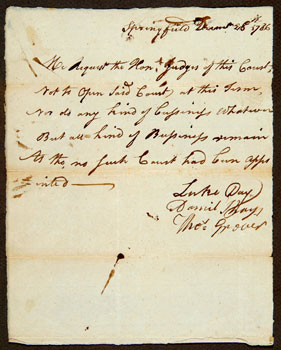 Springfield Decemr 26th 1786
We Request the Honle Judges of this Court,
Not to Open Said Court at this Term
Nor do any kind of Bussiness Whatever
But all kind of Bussiness remain
As tho no Such Court had bun appo
inted
Luke Day
Daniel Shays
Thos Grover